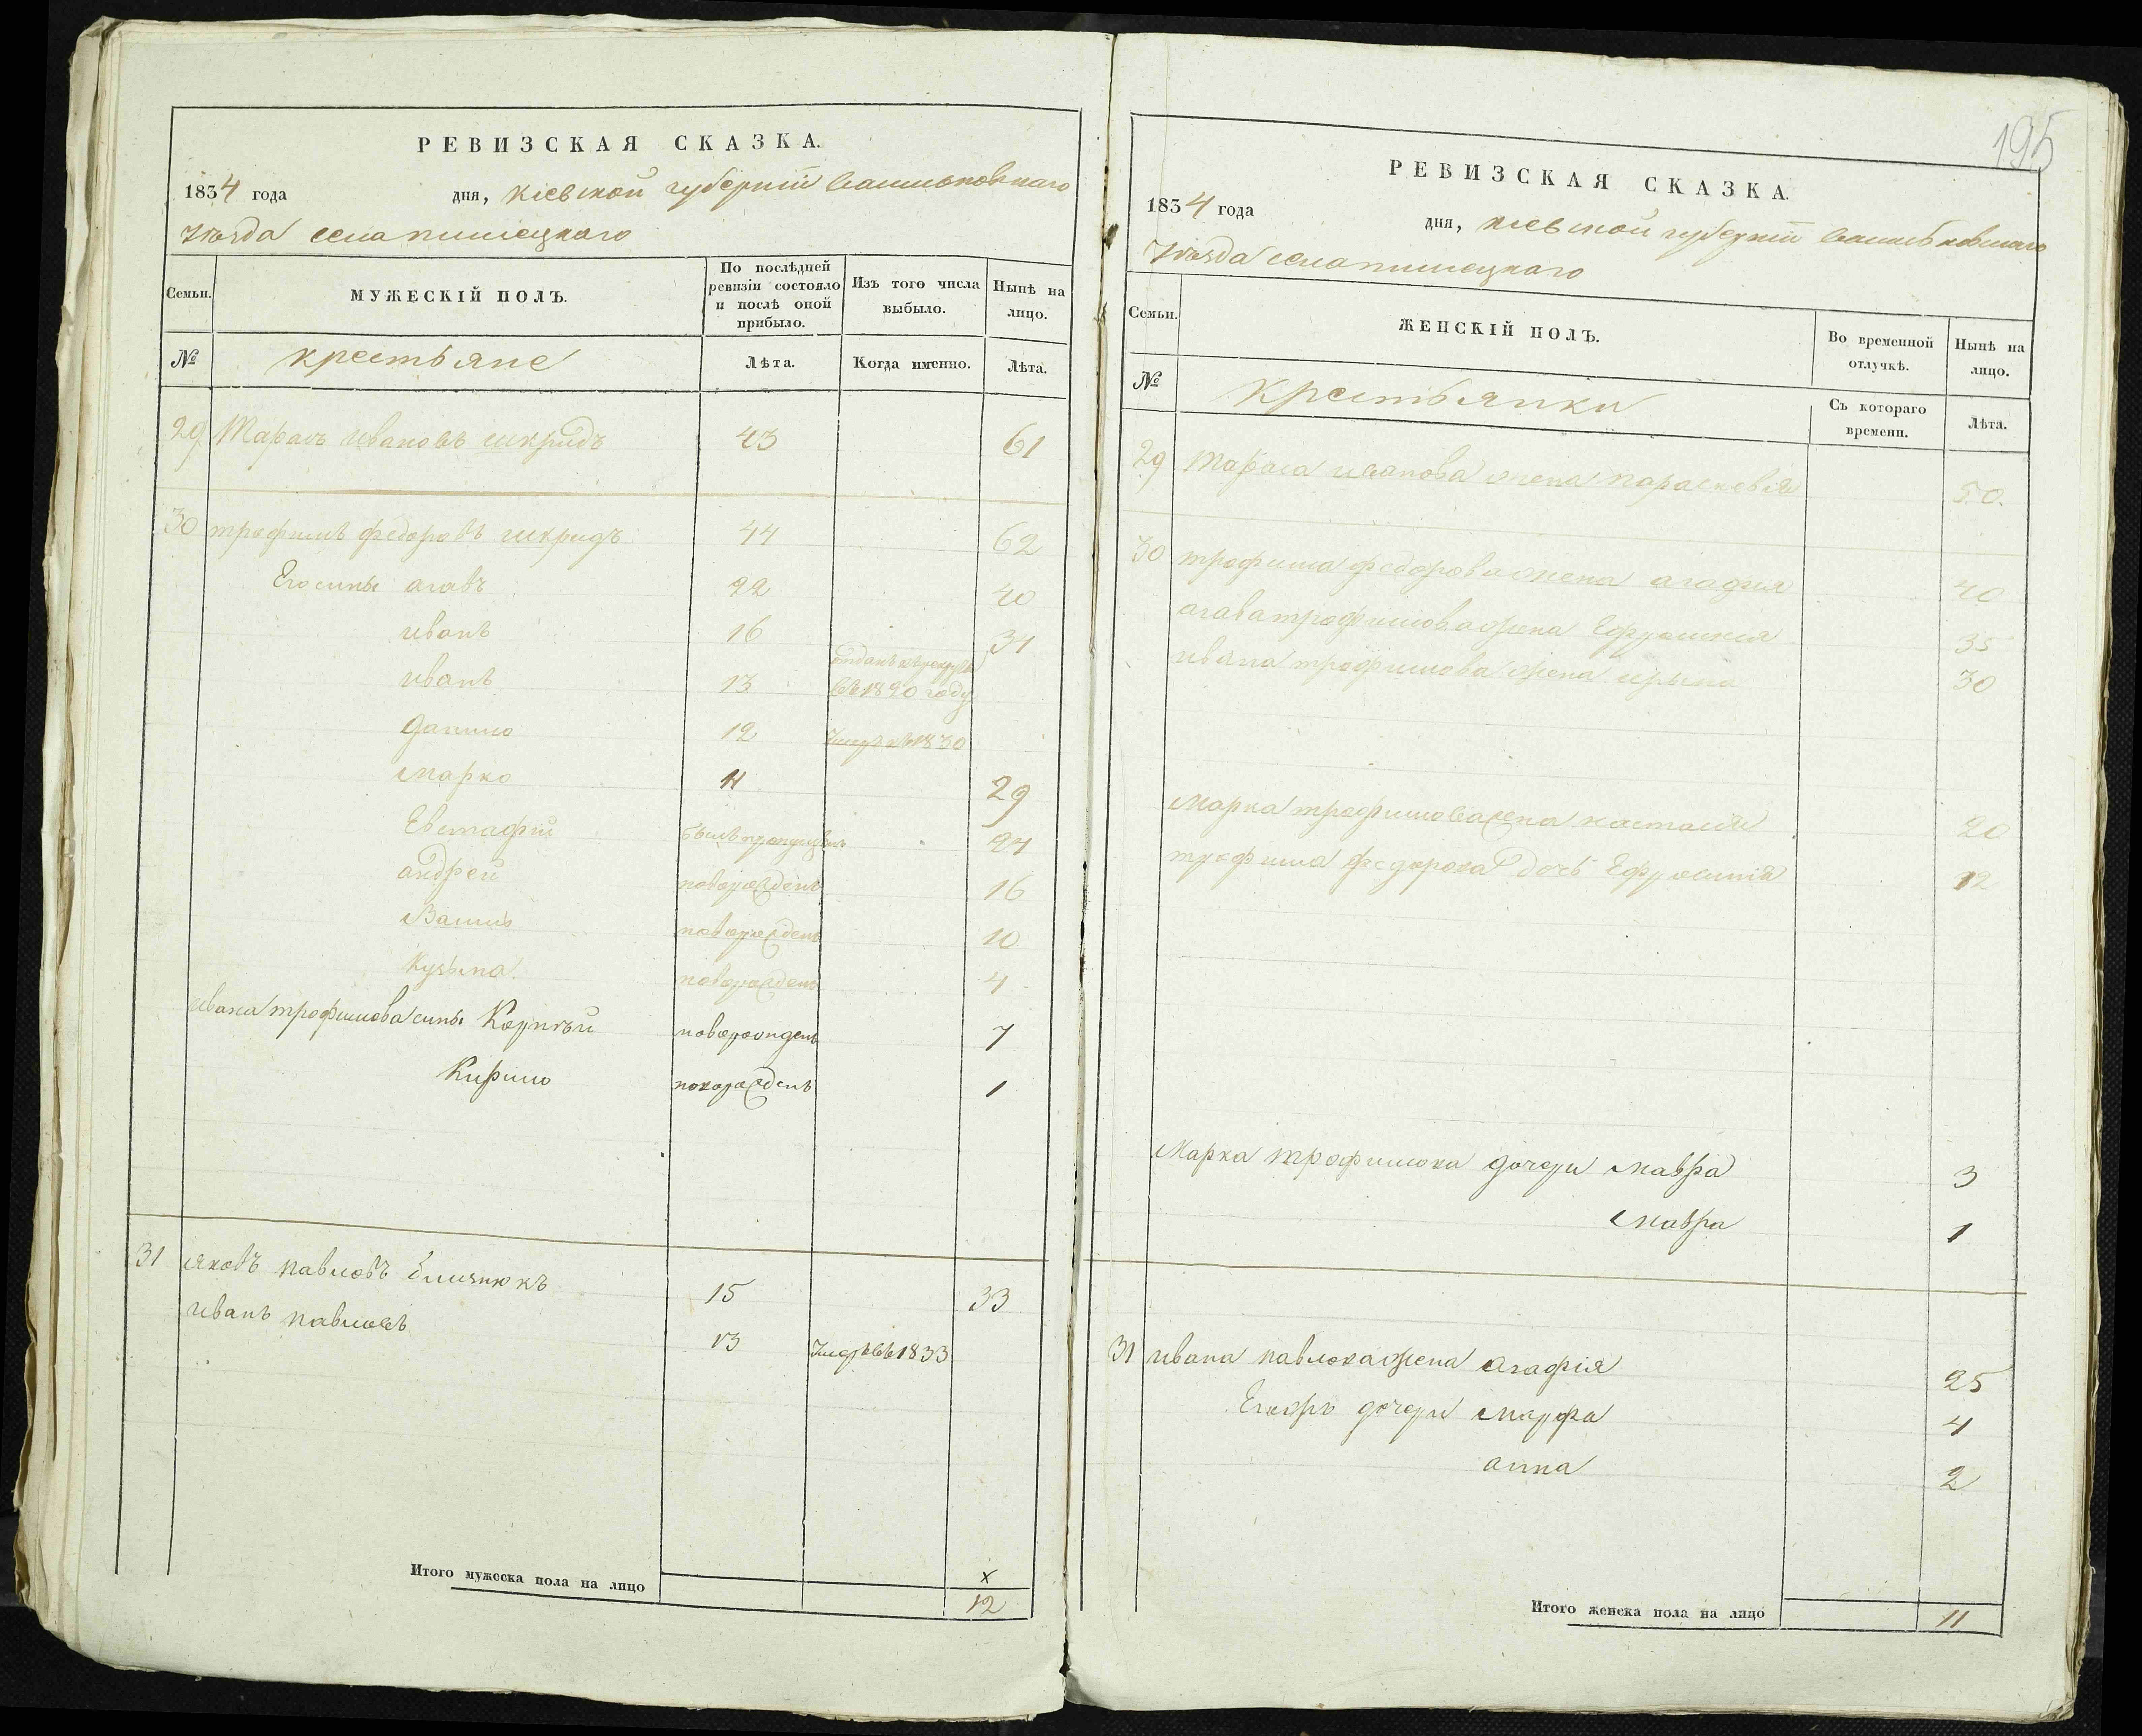 РЕВИЗСКАЯ СКАЗКА.
1834 года дня, кіевской губерніи васильковскаго
уѣзда села
Семьи. МУЖЕСКІЙ ПОЛЪ. По послѣдней ревизіи состояло и послѣ оной прибыло. Изъ того числа выбыло. Нынѣ на лицо.
№ крестьяне Лѣта. Когда именно. Лѣта.
29 Тарасъ ивановъ шкридъ 43 61
30 трофимъ федоровъ шкридъ 44 62
Его сины агавъ 22 40
иванъ 16 34
иванъ 13 отданъ въ рекруты въ 1820 году
данило 12 умеръ въ 1830
марко 11 29
Евстафій былъ пропущенъ 27
андрей новорожденъ 16
Василь новорожденъ 10
Кузьма новорожденъ 4
ивана трофимова сины Корнѣй новорожденъ 7
Кирило новорожденъ 1
31 яковъ павловъ 15 33
иванъ павловъ 13 умеръ въ 1833
Итого мужеска пола на лицо х 12
195
РЕВИЗСКАЯ СКАЗКА.
1834 года дня, кіевской губерніи васильковскаго
уѣзда села
Семьи. ЖЕНСКІЙ ПОЛЪ. Во временной отлучкѣ. Нынѣ на лицо.
№ крестьянки Съ котораго времени. Лѣта.
29 Тараса иванова жена параскевія 50.
30 трофима федорова жена агафія 40
агава трофимова жена 35
ивана трофимова жена ирина 30
Марка трофимова жена настасія 20
трофима федорова дочь Ефросинія 12
Марка трофимова дочери мавра 3
мавра 1
31 ивана павлова жена агафія 25
Еяжъ дочери марфа 4
анна 2
Итого женска пола на лицо 11